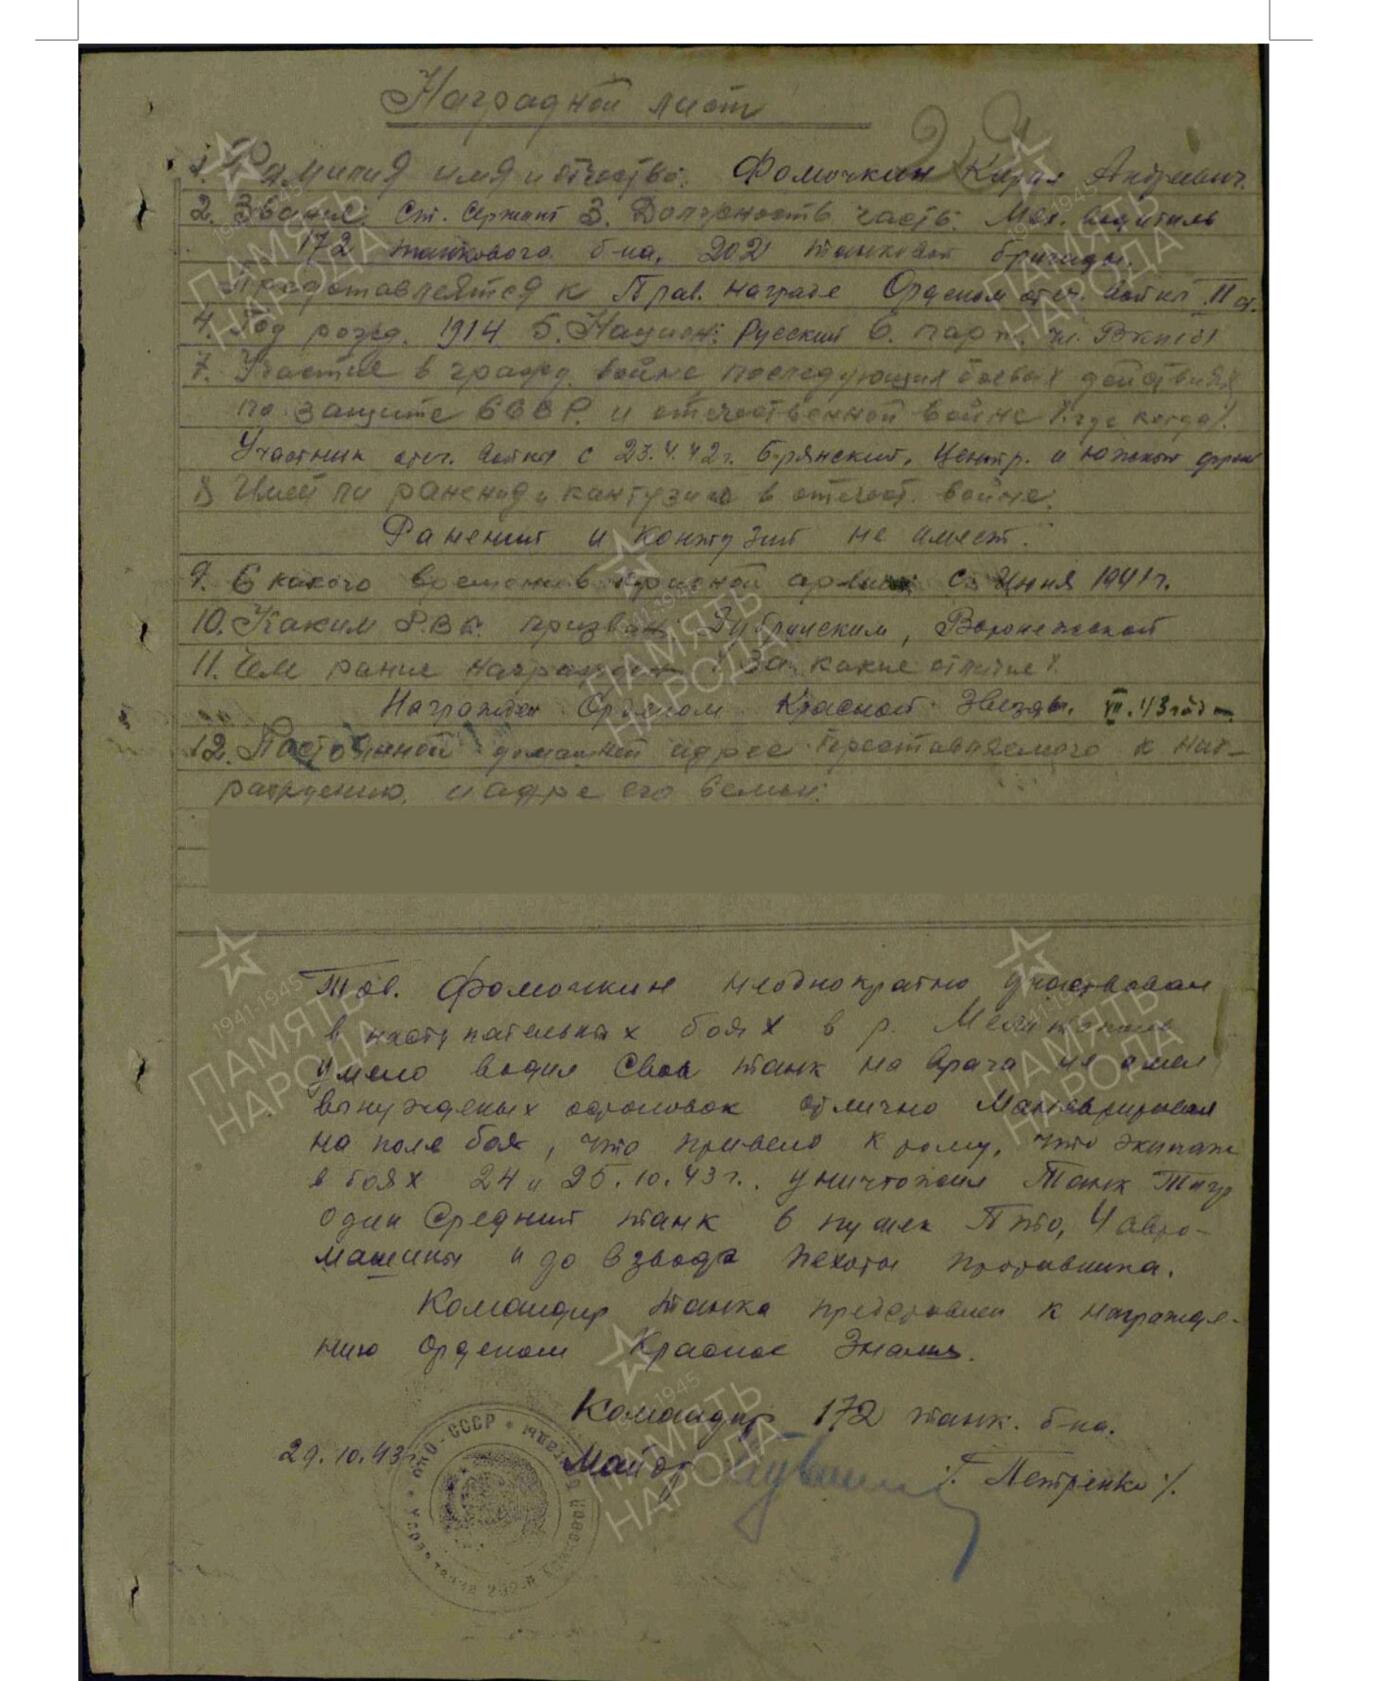 Наградной лист
1. Фамилия имя и отчество: Фомочкин Андреевич.
2. Звание: Ст. Сержант 3. Должность часть: Мех. водитель
172 танкового б-на, 202 танковой бригады.
Представляется к Прав. награде Орденом отеч. войны II ст.
4. Год рожд. 1914 5. Национ: Русский 6. парт. чл. ВКП(б)
7. Участие в гражд. войне последующих боевых действиях
по защите СССР. и отечественной войне /. где когда /.
Участник отеч. войны с 23.4.42г. Брянский, Центр. и Южном фрон
8 Имеет ли ранения и кантузии в отечест. войне:
Ранений и контузий не имеет.
9. С какого времени в красной армии: С Июня 1941г.
10. Каким Р.В.К. призван: Воронежской
11. Чем ранее награжден / За какие отличия /.
Награжден Орденом Красной Звезды. VII.43 год
12. Постоянной домашней адрес преставляемого к наг-
раждению, и адре его семьи:
Тов. Фомочкин неоднократно участвовал
в наступательных боях в р. Мелитополь
умело водил свой танк на врага не имел
вынужденых остоновок отлично Маневрировал
на поле боя, что привело к тому, что экипаж
в боях 24 и 25.10.43г. уничтожил Танк Тигр
один Средний танк 6 пушек ПТО, 4 авто-
машины и до взвода пехоты противника.
Командир танка представлен к награжде-
нию орденом Красное Знамя.
Командир 172 танк. б-на.
29.10.43г. Майор /. Петренко /.
НКО-СССР
ПАМЯТЬ
НАРОДА
1941-1945
ПАМЯТЬ
НАРОДА
1941-1945
ПАМЯТЬ
НАРОДА
1941-1945
ПАМЯТЬ
НАРОДА
1941-1945
ПАМЯТЬ
НАРОДА
1941-1945
ПАМЯТЬ
НАРОДА
1941-1945